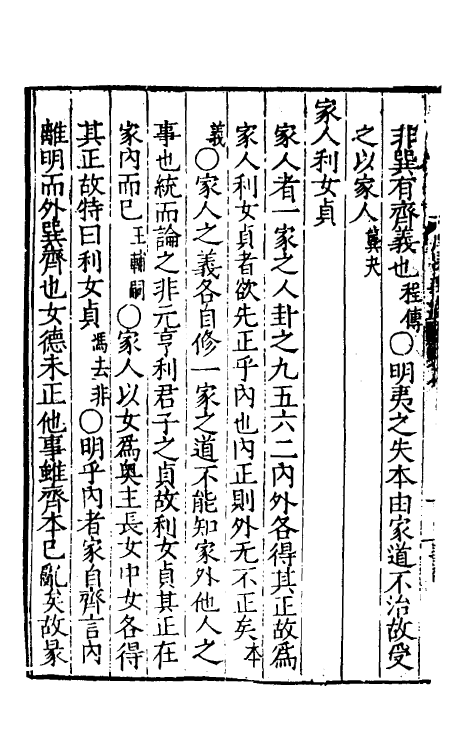 非巽有齊義也程傳〇明夷之失本由家道不治故受
之以家人龔夬
家人利女貞
家人者一家之人卦之九五六二內外各得其正故爲
家人利女貞者欲先正乎內也內正則外无不正矣本
義〇家人之義各自修一家之道不能知家外他人之
事也統而論之非元亨利君子之貞故利女貞其正在
家內而已王輔嗣〇家人以女爲奥主長女中女各得
其正故特曰利女貞馮去非〇明乎內者家自齊言內
離明而外巽齊也女德未正他事雖齊本已亂矣故彖